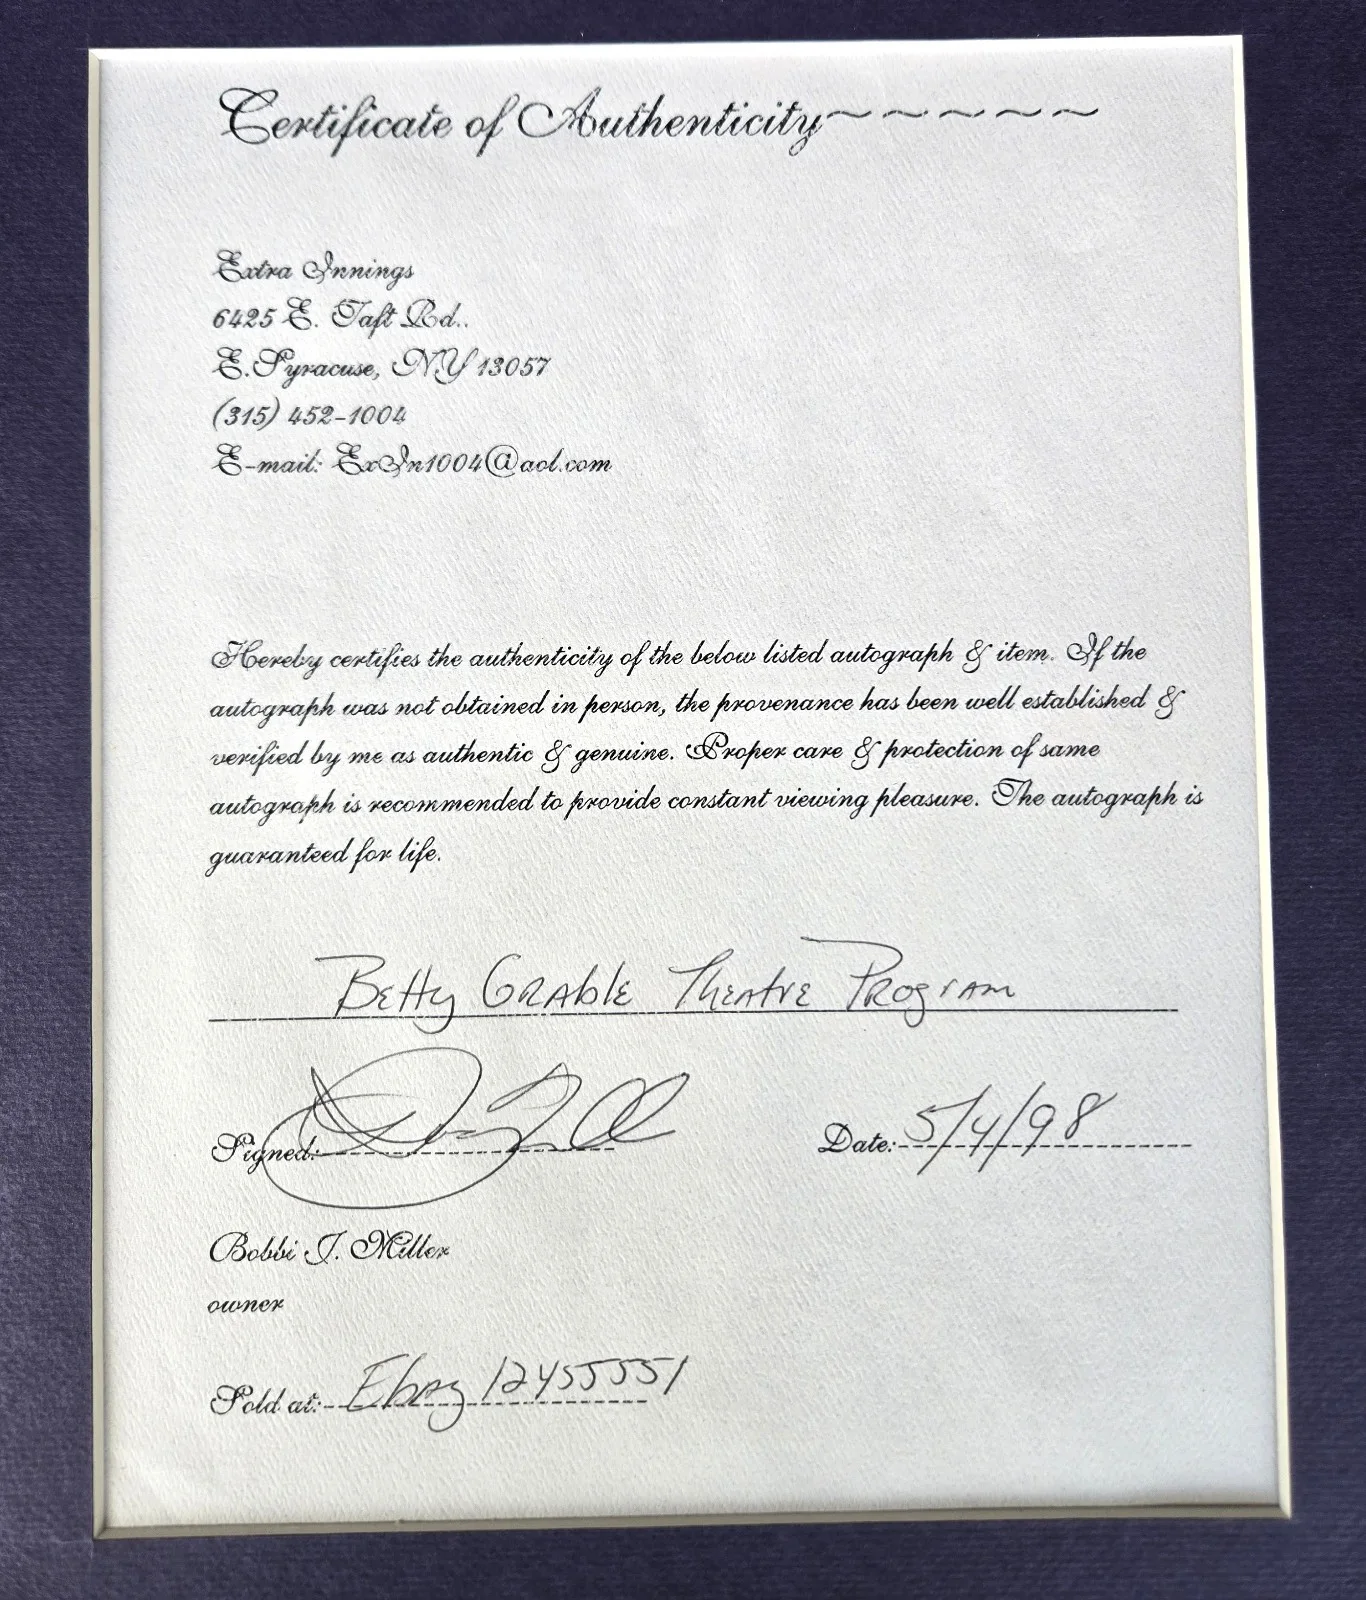 Certificate of Authenticity~ ~ ~ ~ ~ ~
Extra Innings
6425 E. Taft Rd..
E.Syracuse, NY 13057
(315) 452-1004
E-mail: ExIn1004@aol.com
Hereby certifies the authenticity of the below listed autograph & item. If the
autograph was not obtained in person, the provenance has been well established &
verified by me as authentic & genuine. Proper care & protection of same
autograph is recommended to provide constant viewing pleasure. The autograph is
guaranteed for life.
Betty Grable Theatre Program
Signed: Date: 5/4/98
Bobbi J. Miller
owner
Sold at: Ebay 12455551